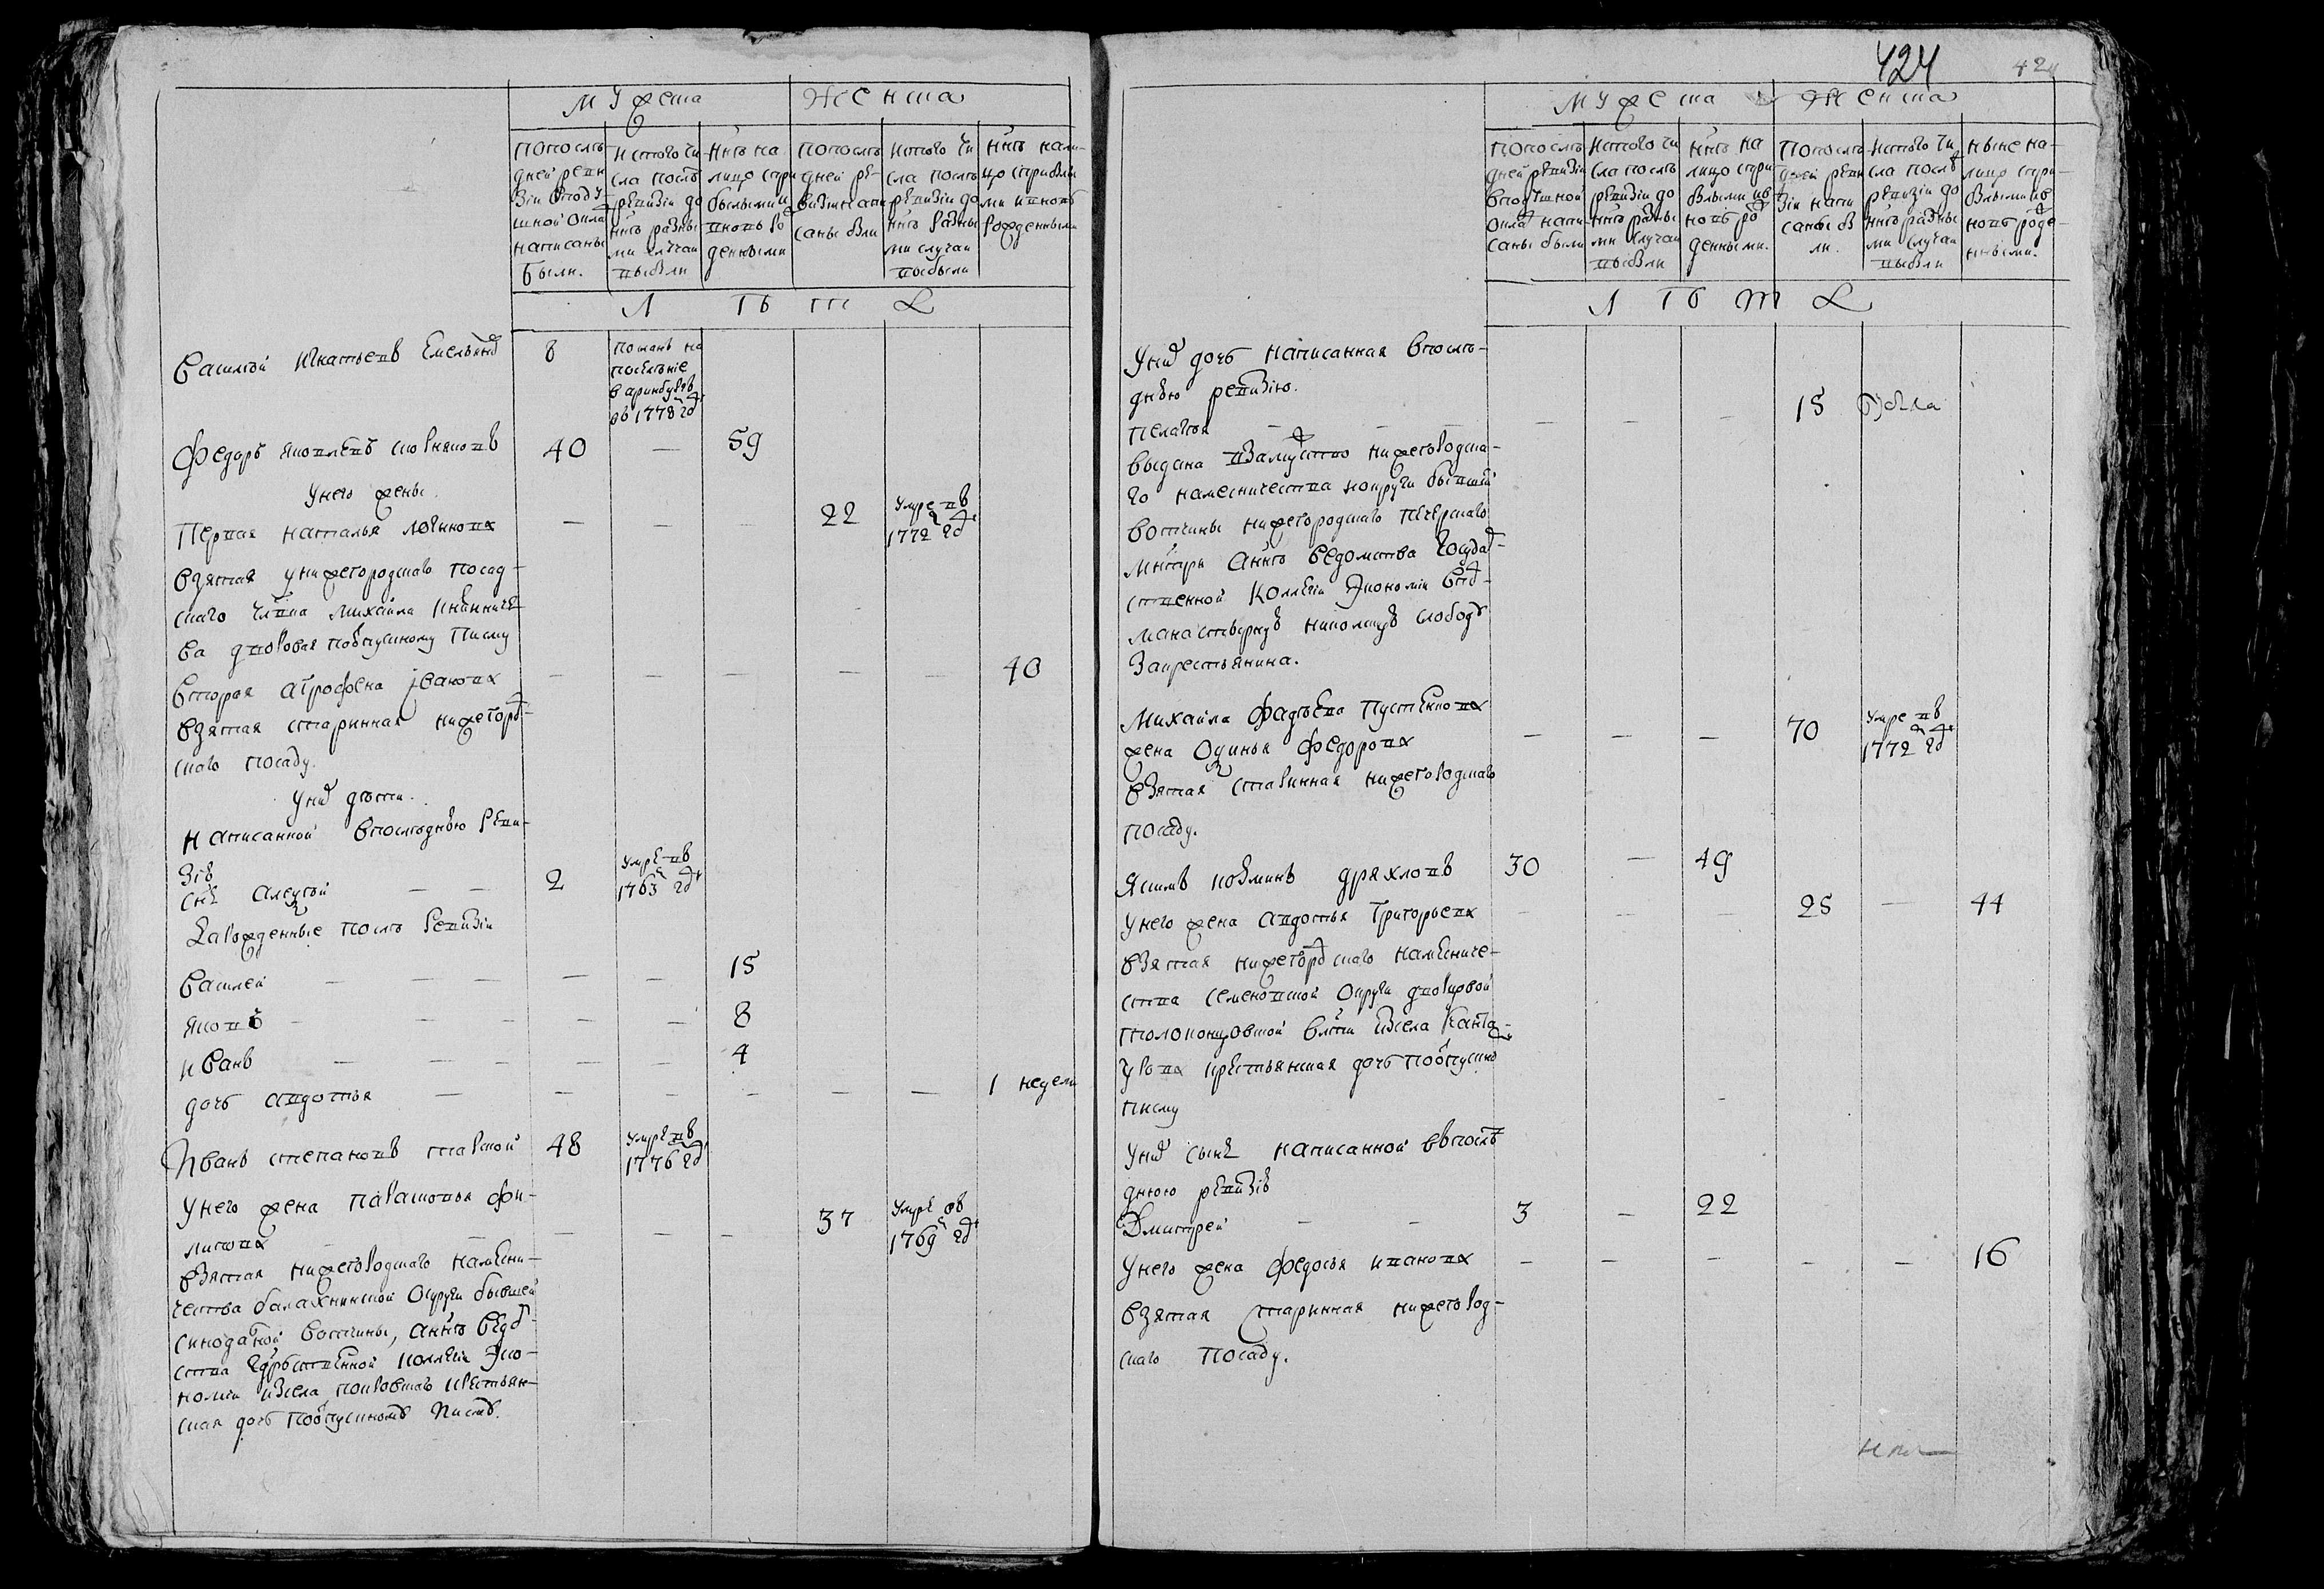 мужеска женска
Попослѣдней ревизіи вподушной окладъ написаны были.
Истого числа послѣ ревизіи до нынѣ разными случаи выбыли
Нынѣ налицо сприбылыми и вновь рожденными
Попослѣдней ревизіи написаны были
Истого числа послѣ ревизіи до нынѣ разными случаи выбыли
Нынѣ налицо сприбылыми ивновь рожденными
Лѣта
Василей Игнатьевъ Емельяновъ 8
посланъ на
поселѣніе
в
въ 1778 году
Федоръ Яковлевъ 40 — 59
Унего жены.
Первая Наталья Логинова — — 22 умре въ
1772 году
взятая унижегородскаго посад-
скаго Михайла
ва дворовая поотпускному писму
Вторая Агрофена Іванова — — — — — 40
взятая старинная нижегород-
скаго посаду.
Унихъ дѣти.
Написанной впослѣднюю реви-
зію
сынъ Алексѣй — — 2 умре въ
1763 году
Зарожденные послѣ ревизіи
Василей — — — — — 15
Яковъ — — — — — — 8
Иванъ — — — — — — 4
дочь Авдотья — — — — — — 1 недели
Иванъ Степановъ 48 умре въ
1776 году
Унего жена Парасковья Фи-
липова — — — — — 37 умре въ
1769 году
взятая нижегородскаго намѣсни-
чества балахнинской округи бывшей
синодалной вотчины, анынѣ ведом-
ства государственной коллегіи Эко-
номіи изсела покровскаго крестьян-
ская дочь поотпускному писму.
424 424
мужеска женска
Попослѣдней ревизіи вподушной окладъ написаны были
Истого числа послѣ ревизіи до нынѣ разными случаи выбыли
Нынѣ на лицо сприбылыми ивновь рожденными.
Попослѣдней ревизіи написаны были.
Истого числа послѣ ревизіи до нынѣ разными случаи выбыли
Ныне налицо сприбылыми ивновь рожденными.
Лѣта
Унихъ дочь написанная впослѣ-
днюю ревизію.
Пелагея — — — — — — 15
выдана взамужство нижегородска-
го намесничества покруги бывшей
вотчины нижегородскаго печерскаго
мнстря анынѣ ведомства государ-
ственной Коллегіи Экономіи впод-
слободу
закрестьянина.
Михайла Фадѣева Пустынкова
жена Федорова — — — 70 умре въ
1772 году
взятая старинная нижегородскаго
посаду.
Якимъ Козминъ Дряхловъ 30 — 49
Унего жена Авдотья Григорьева — — — 25 — 44
взятая нижегородскаго намѣсниче-
ства семеновской округи дворцовой
толоконцовской влсти изсела Канта-
урова крестьянская дочь поотпускному
писму
Унихъ сынъ написанной ввпослѣ-
днюю ревизію
Дмитрей — — 3 — 22
Унего жена Федосья Иванова — — — — — 16
взятая старинная нижегород-
скаго посаду.